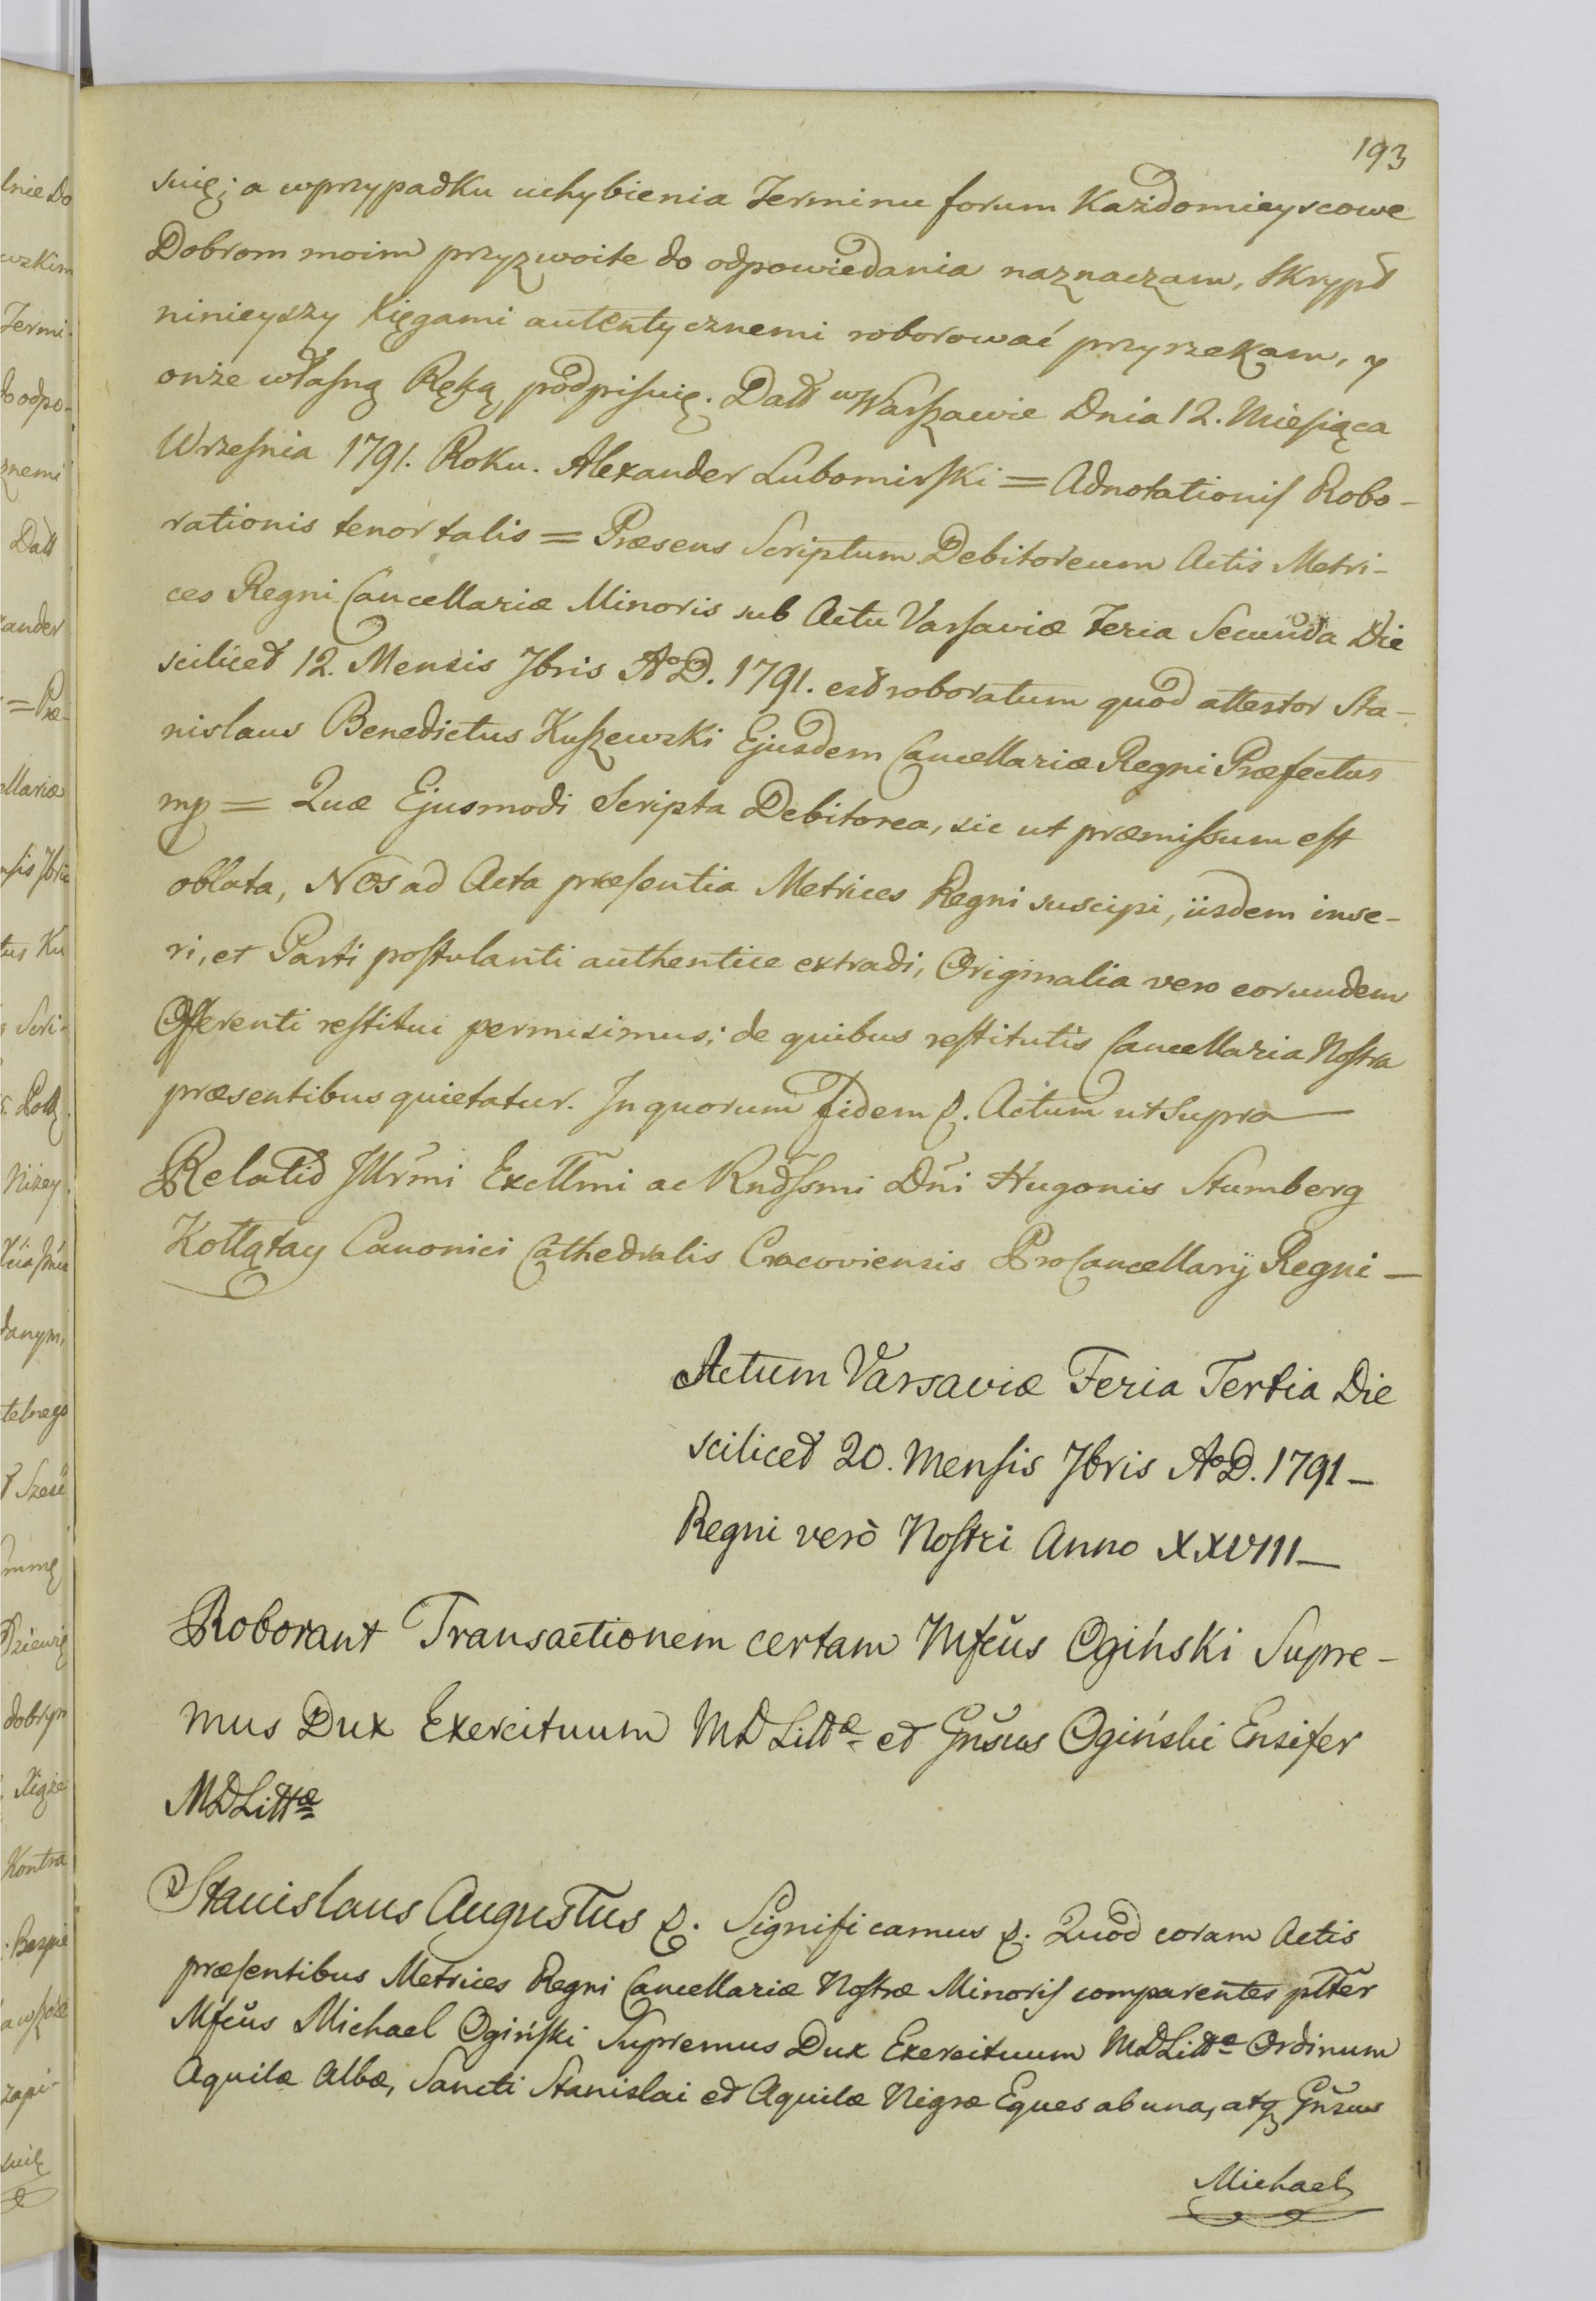 193
suię; a wprzypadku uchybienia Terminu forum Każdomieyscowe
Dobrom moim przyzwoite do odpowiedania naznaczam, Skrypt
ninieyszy Xięgami autentycznemi roborować przyrzekam, y
onże własną Ręką podpisuię. Datt w Warszawie Dnia 12. Miesiąca
Września 1791. Roku. Alexander Lubomirski = Adnotationis Robo-
rationis tenor talis = Præsens Scriptum Debitoreum Actis Metri-
ces Regni Cancellariæ Minoris sub Actu Varsaviæ Feria Secunda Die
scilicet 12. Mensis 7bris A°D. 1791. est roboratum quod attestor Sta-
nislaus Benedictus Kuszewski Ejusdem Cancellariæ Regni Præfectus
mp = Quæ Ejusmodi Scripta Debitorea, sic ut præmissum est
oblata, Nos ad Acta præsentia Metrices Regni suscipi, iisdem inse-
ri, et Parti postulanti authentice extradi, Originalia vero eorundem
Offerenti restitui permisimus; de quibus restitutis Cancellaria Nostra
præsentibus quietatur. In quorum fidem &. Actum ut Supra
Relatio Illrmi Excllmi ac Rndssmi Dni Hugonis Stumberg
Kołłątay Canonici Cathedralis Cracoviensis ProCancellarij Regni –
Actum Varsaviæ Feria Tertia Die
scilicet 20. Mensis 7bris A°D. 1791 –
Regni verò Nostri Anno XXVIII –
Roborant Transactionem certam Mfcus Ogiński Supre-
mus Dux Exercituum MDLittæ et Gnsus Ogiński Ensifer
MDLittæ
Stanislaus Augustus &. Significamus &. Quod coram Actis
præsentibus Metrices Regni Cancellariæ Nostræ Minoris comparentes plter
Mfcus Michael Ogiński Supremus Dux Exercituum MDLittæ Ordinum
Aquilæ Albæ, Sancti Stanislai et Aquilæ Nigræ Eques ab una, atq Gnsus
Michael